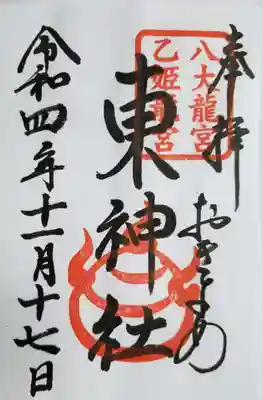 奉拝
八大龍宮
乙姫龍宮
東神社
令和四年十一月十七日